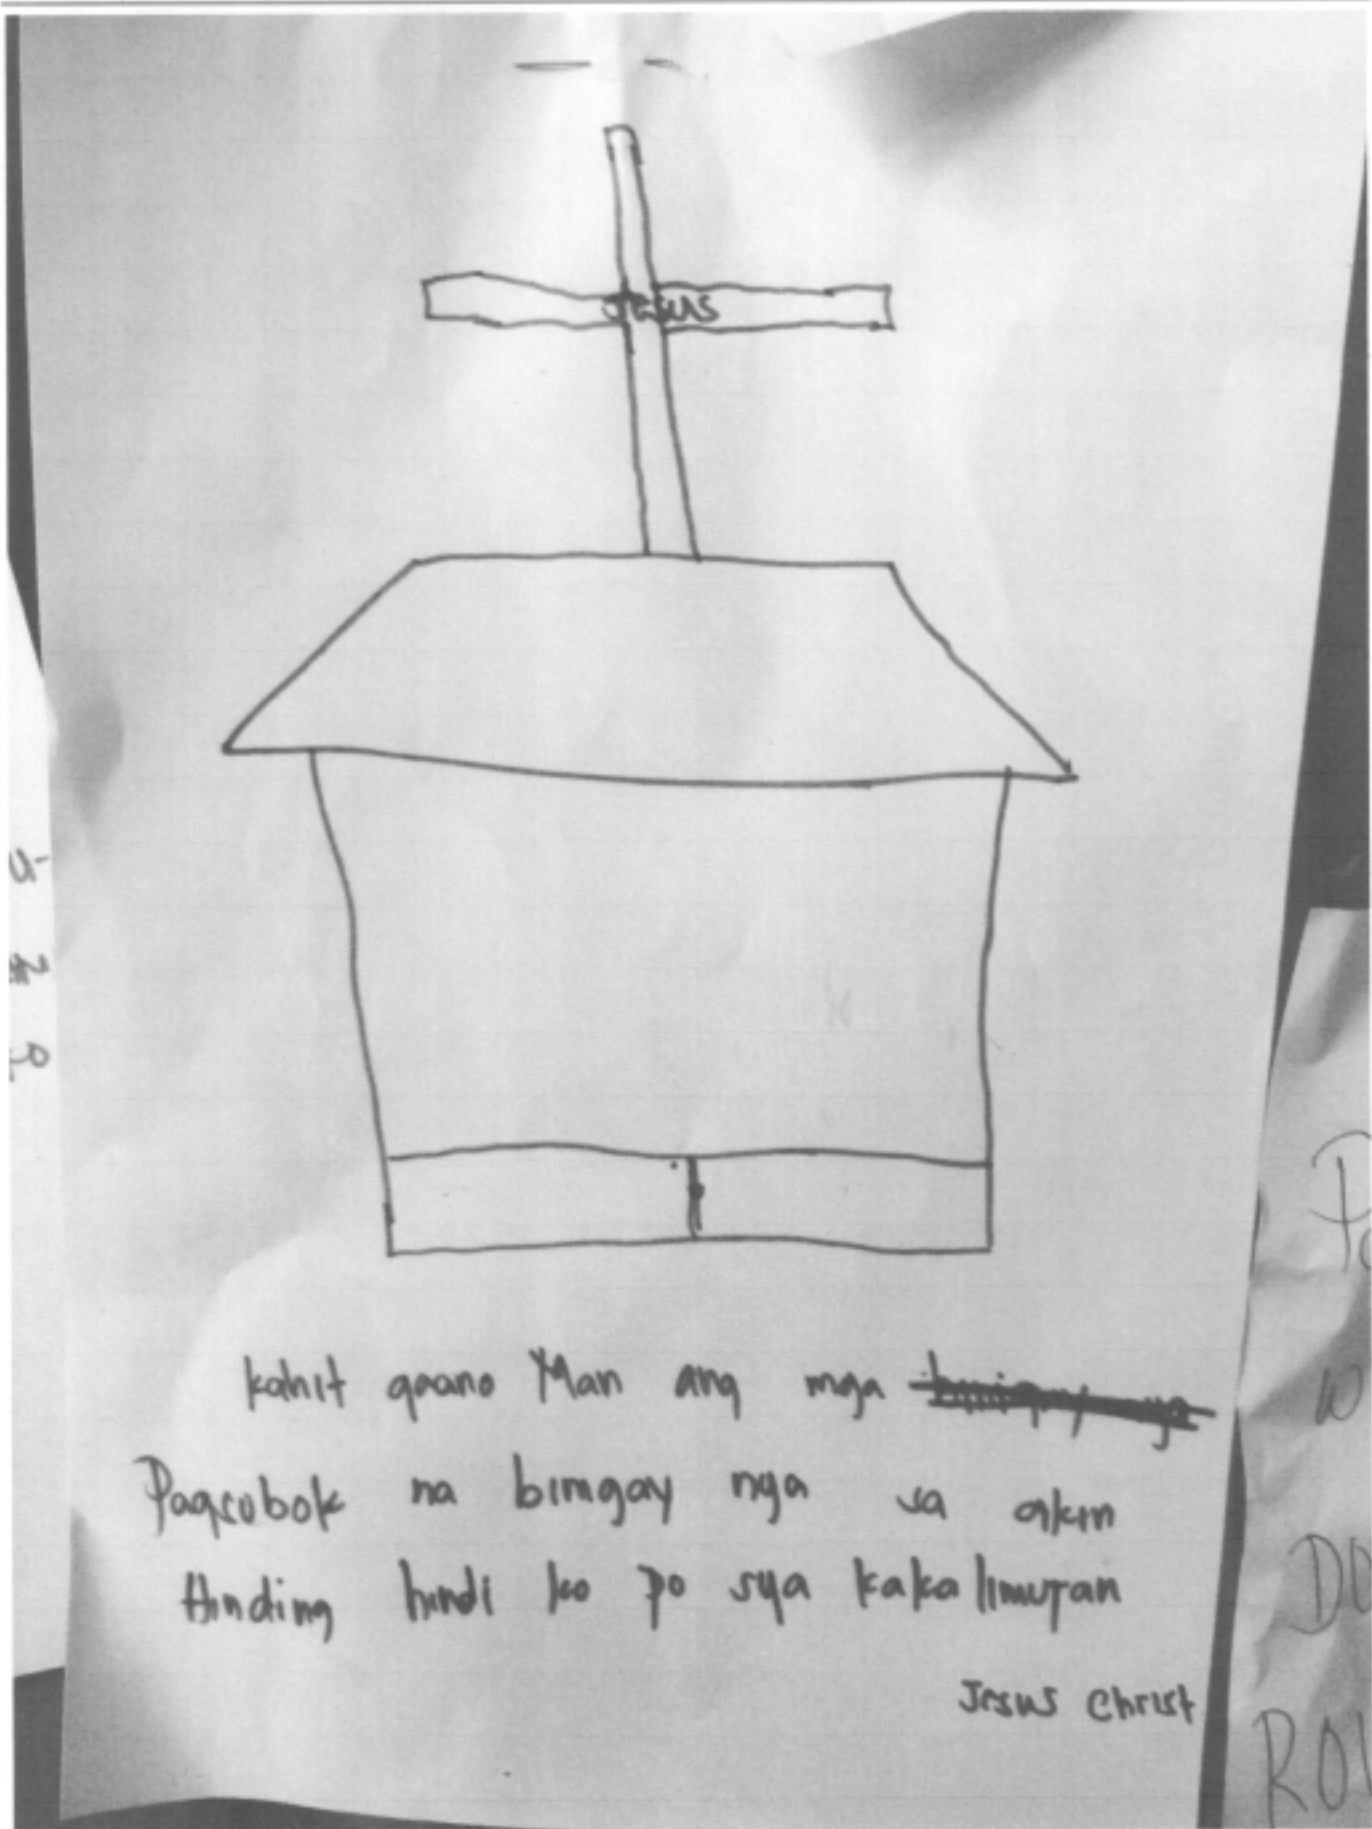 JESUS
kahit gaano Man ang mga
Pagsubok na bimgay nya sa akin
Hinding hindi ko po sya kakalimutan
Jesus Christ
DO
ROL